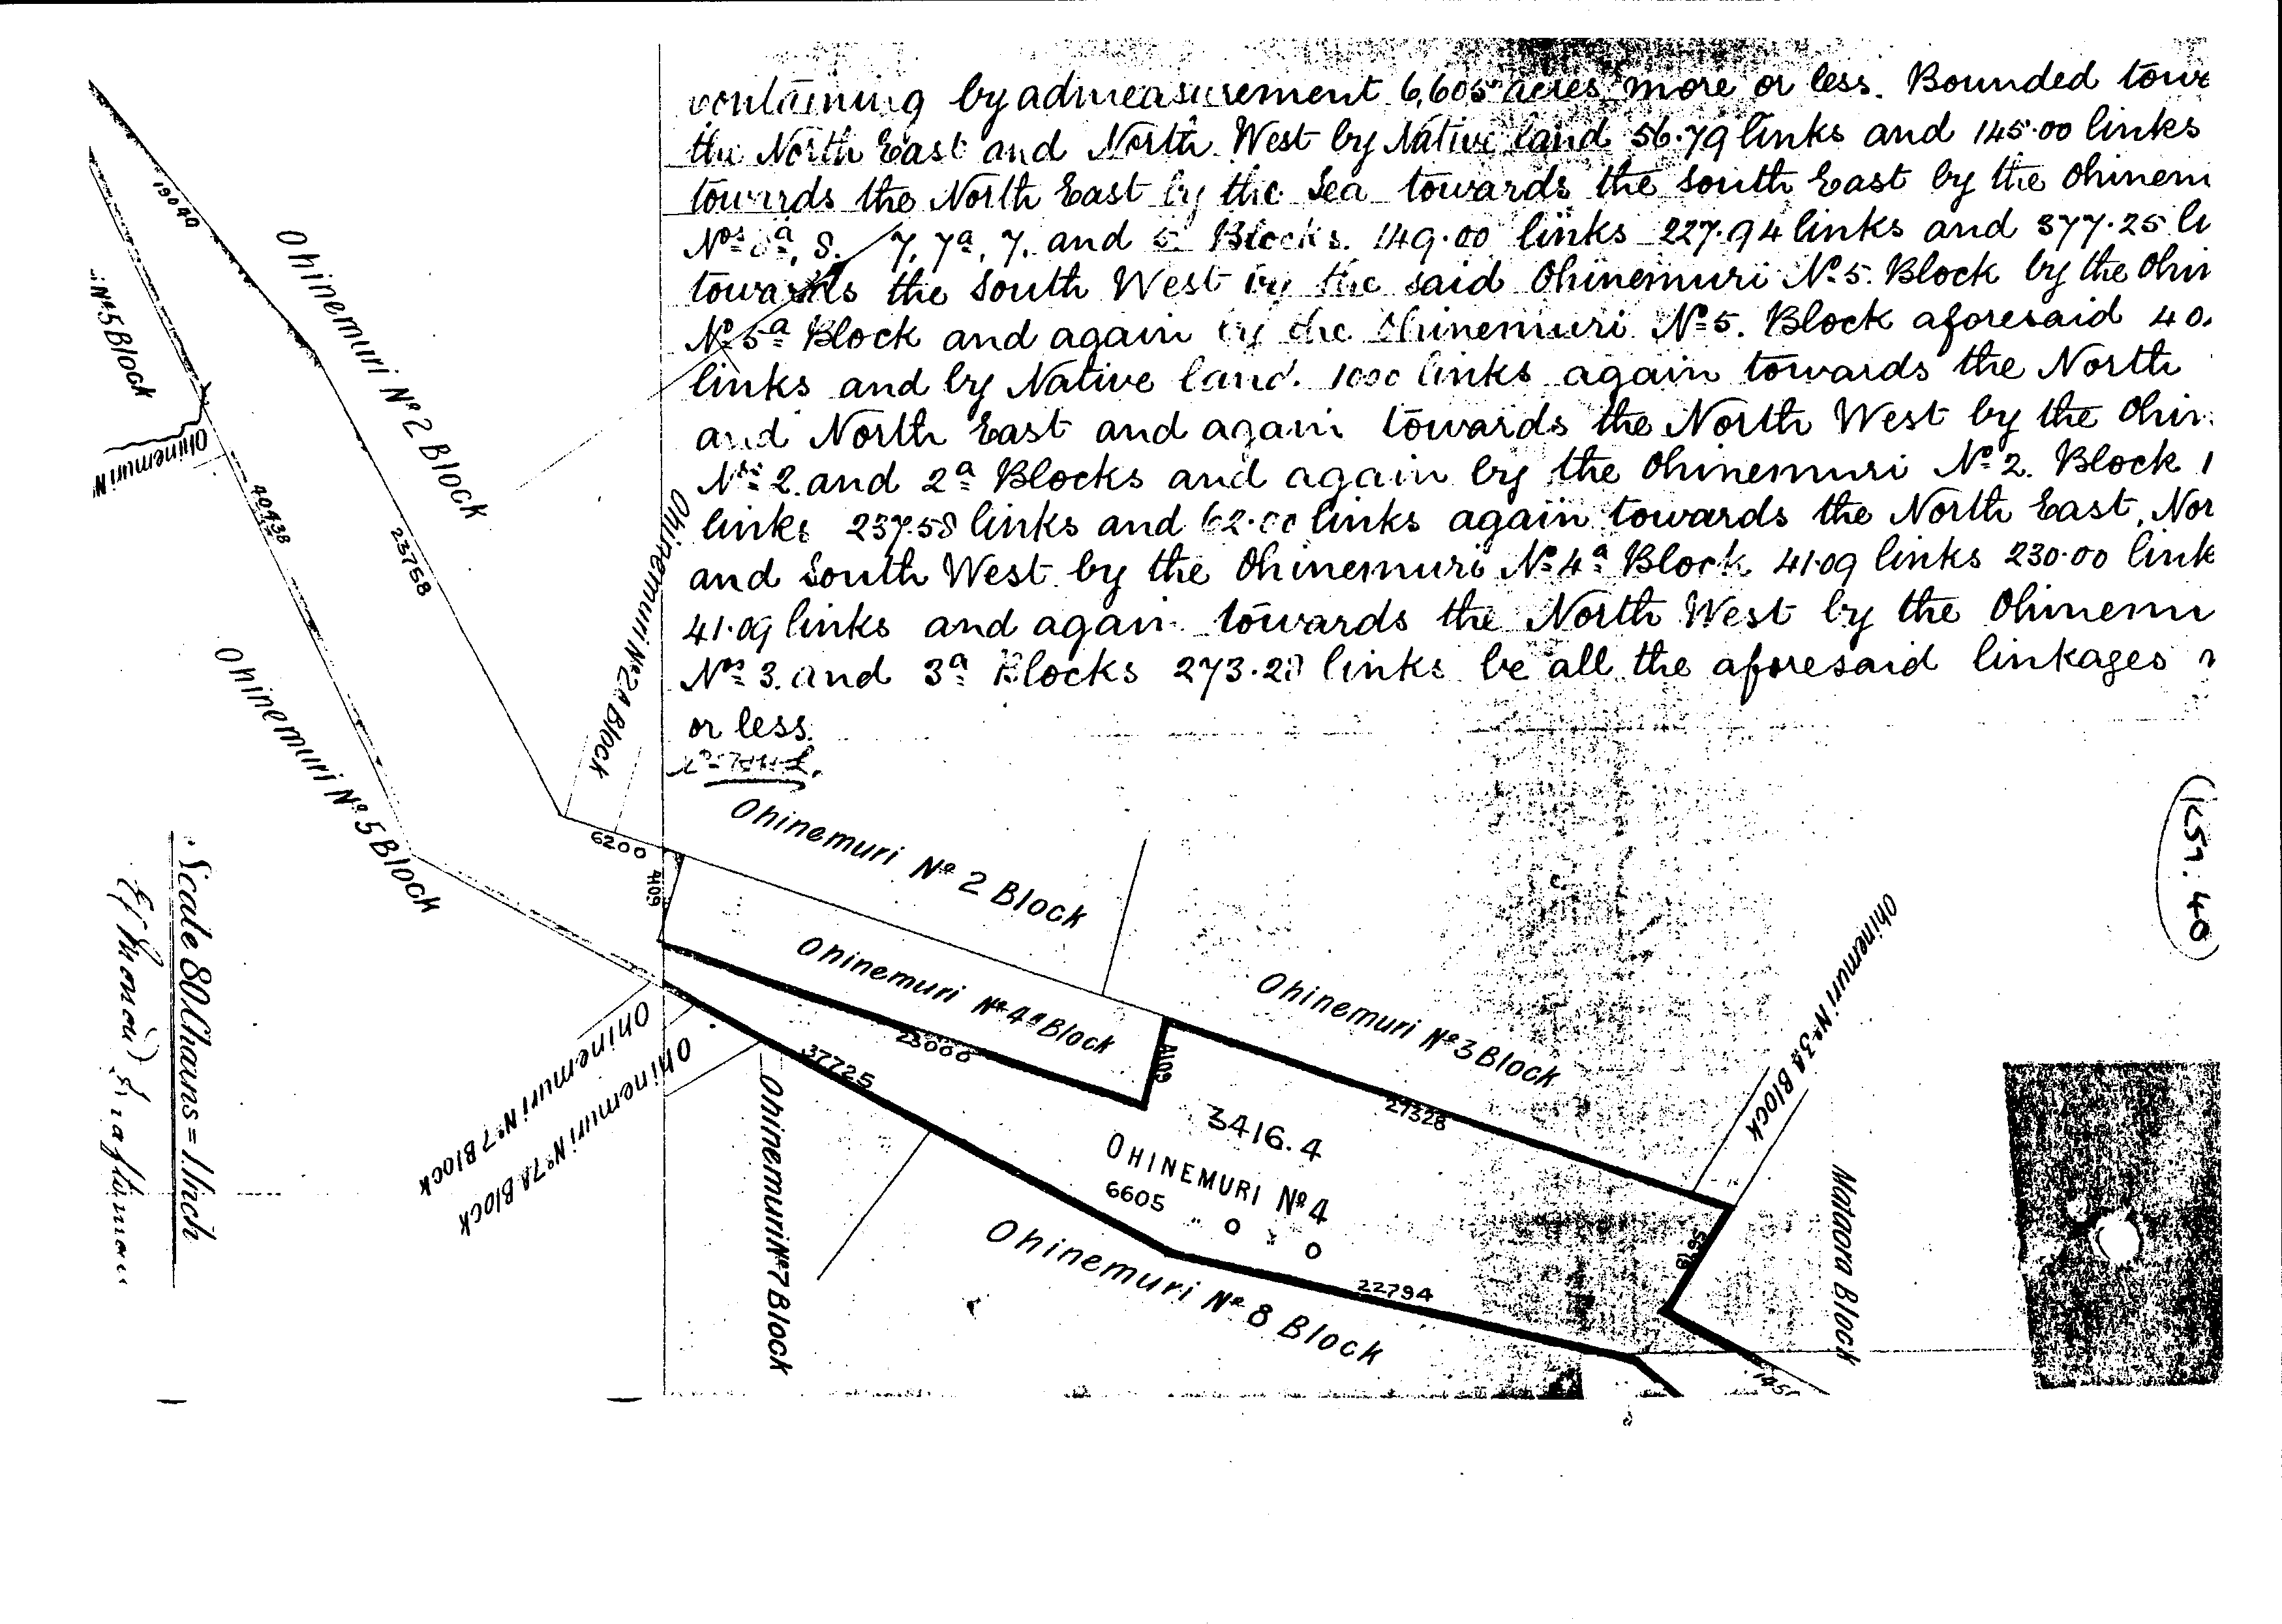 containing by admeasurement 6,605 acres more or less. Bounded tow
the North East and North West by Native land 56.79 links and 145.00 links
towards the North East by the Sea towards the South East by the Ohinem
Nos 8a, 8. 7, 7a, 7. and 5 Blocks. 149.00 links 227.94 links and 377.25 li
towards the South West by the said Ohinemuri No 5. Block by the Ohin
No 5a Block and again by the Ohinemuri No 5. Block aforesaid 40.
links and by Native land. 1000 links again towards the North
and North East and again towards the North West by the Ohin
Nos 2. and 2a Blocks and again by the Ohinemuri No 2. Block 1
links 237.58 links and 62.00 links again towards the North East, Nor
and South West by the Ohinemuri No 4a Block 41.09 links 230.00 link
41.09 links and again towards the North West by the Ohinemu
Nos 3. and 3a Blocks 273.28 links be all the aforesaid linkages
or less.
19040
Ohinemuri No 2 Block
No 5 Block
Ohinemuri N
40438
23758
Ohinemuri No 2A Block
Ohinemuri No 5 Block
6200
4109
Ohinemuri No 2 Block
Ohinemuri No 4a Block
23000
4109
Ohinemuri No 3 Block
27328
Ohinemuri No 3A Block
Matara Block
5679
1450
3416.4
OHINEMURI No 4
6605 " 0 " 0
37725
22794
Ohinemuri No 8 Block
Ohinemuri No 7 Block
Ohinemuri No 7A Block
Ohinemuri No 7 Block
Scale 80 Chains = 1 Inch